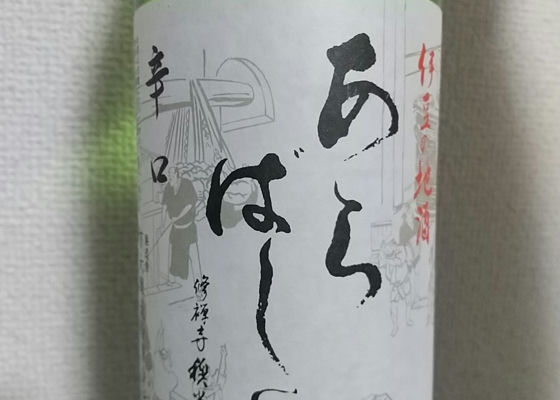 伊豆の地酒
あら
ばし
辛口
修禅寺